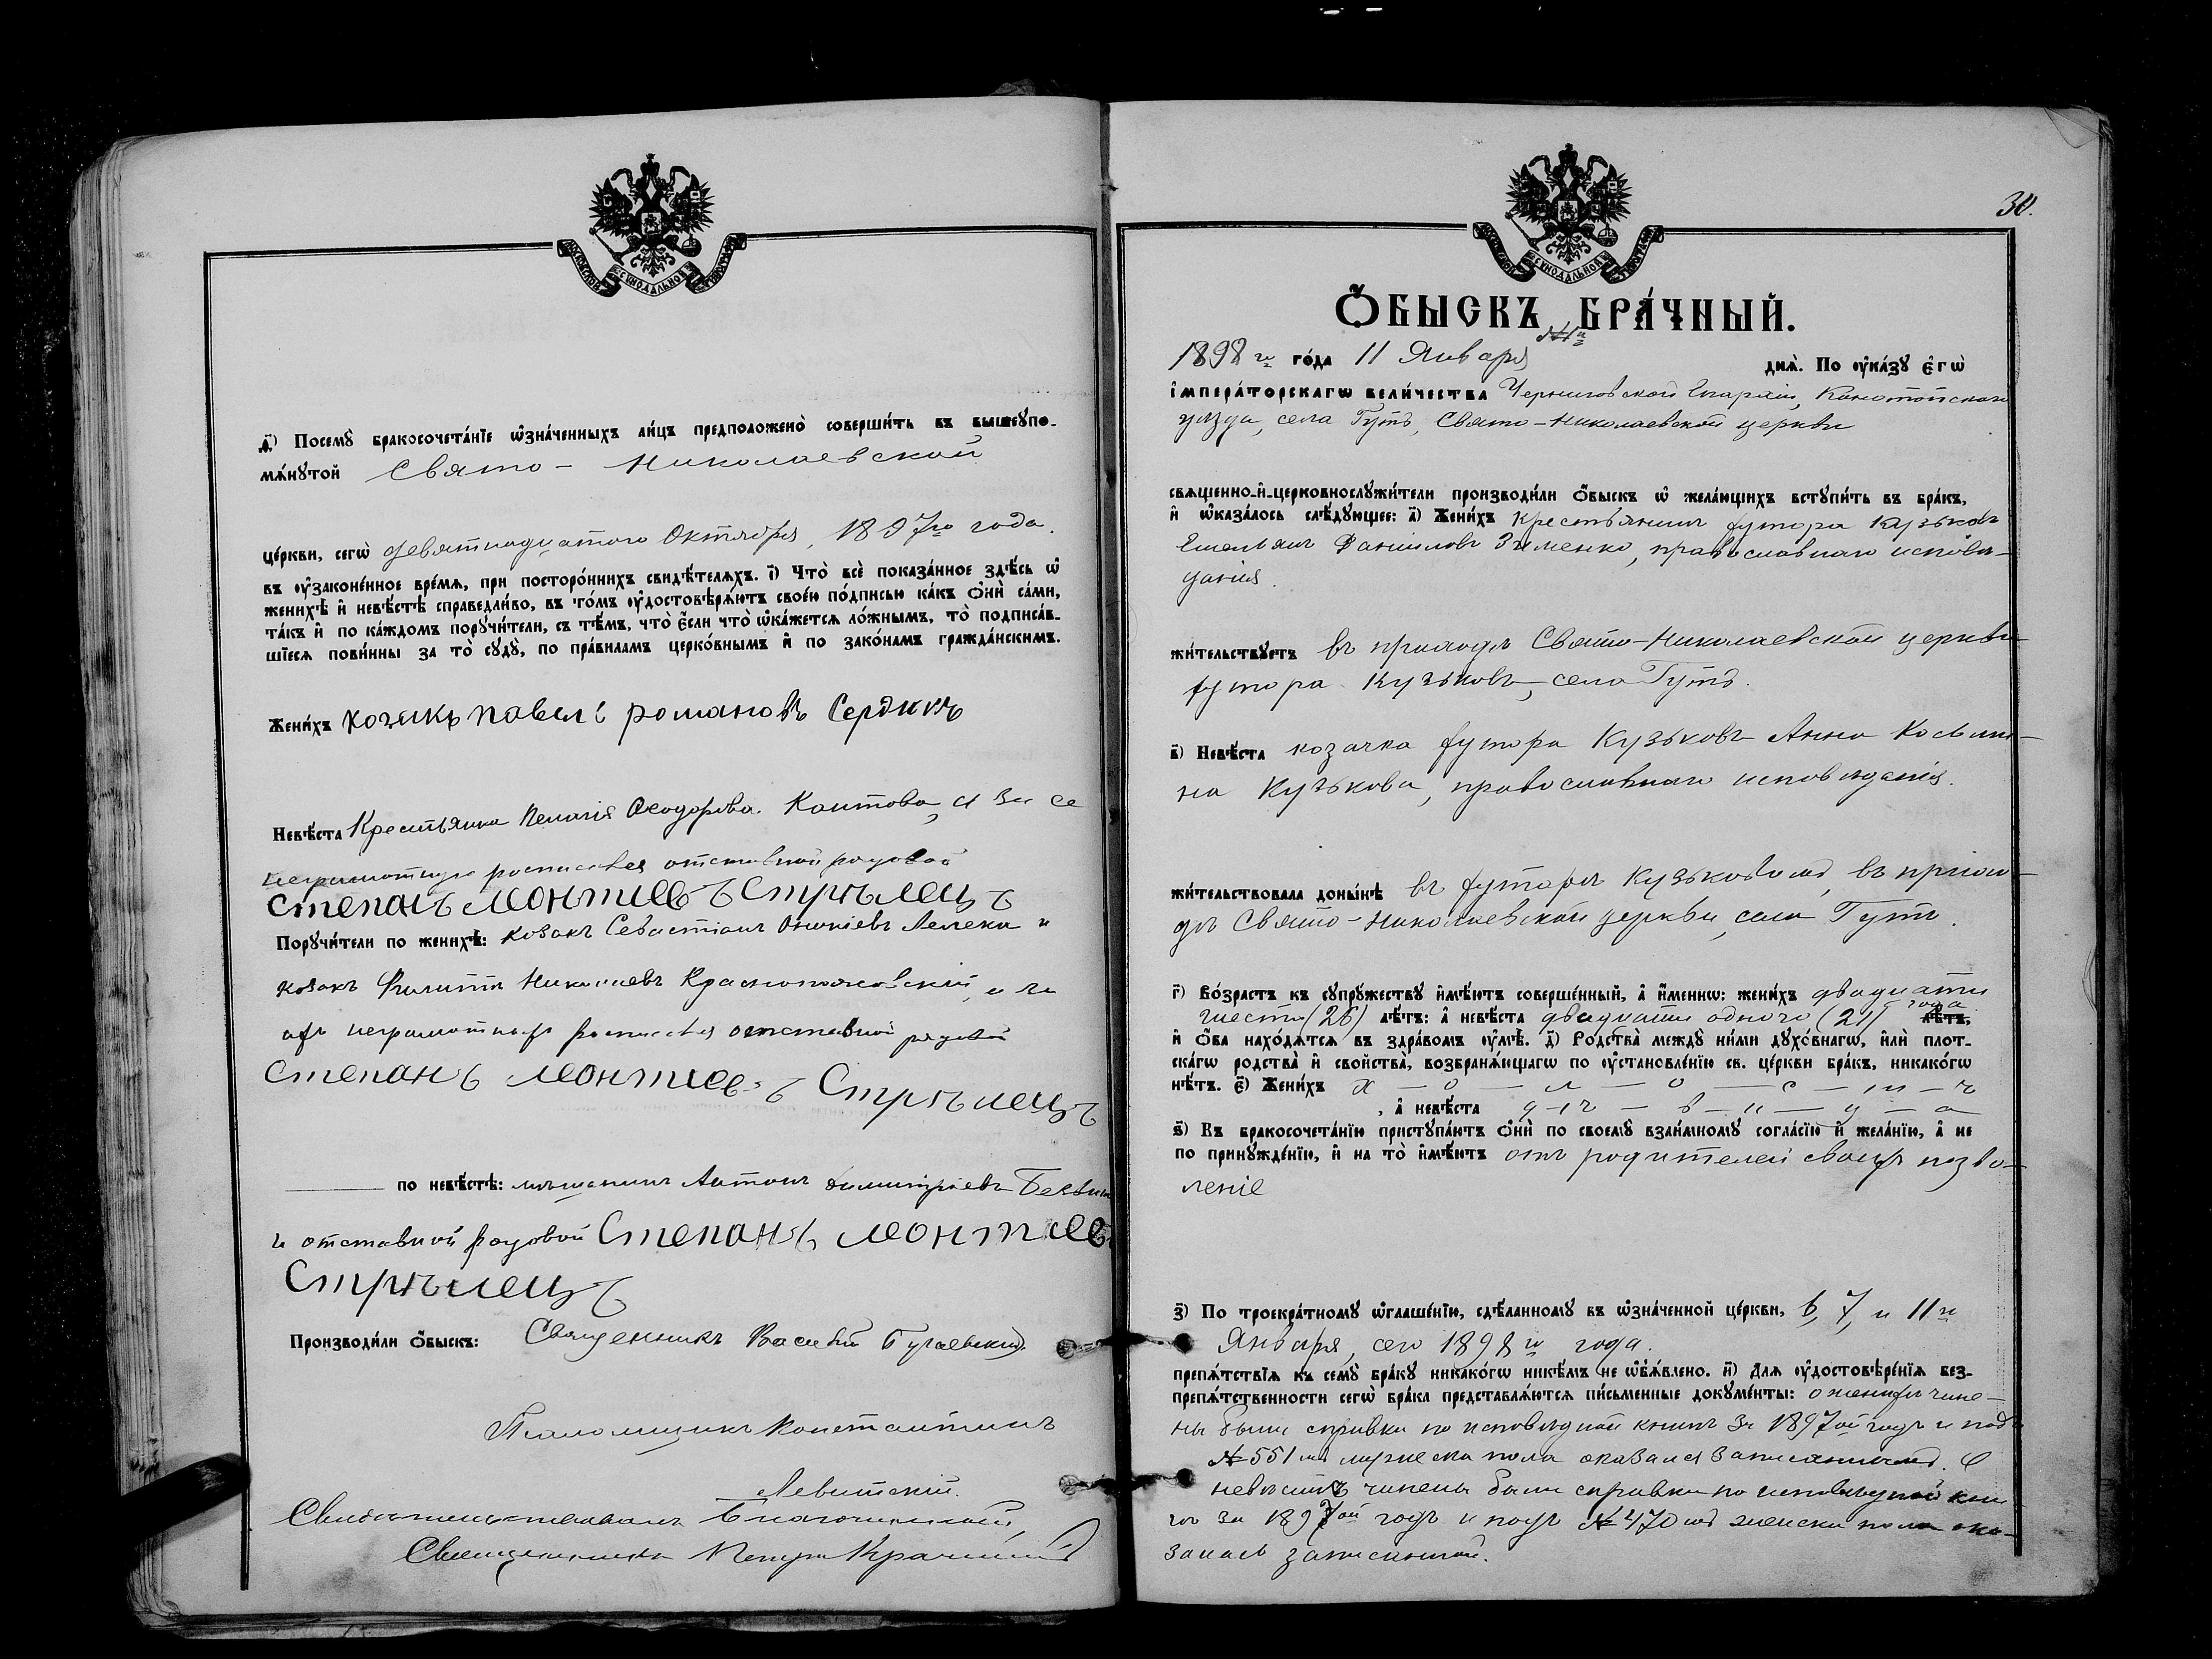 МОСКОВСКОЙ СѴНОДАЛЬНОЙ ТИПОГРАФІИ
ѳ҃) Посемꙋ̀ бракосочета́нїе ѡ҆зна́ченныхъ ли́цъ предположено̀ соверши́ть въ вышеꙋпо-
мѧ́нꙋтой Свято - Николаевской
це́ркви, сегѡ̀ девятнадцатого Октября, 1897го года.
въ ᲂу҆зако́ненное вре́мѧ, при посторо́ннихъ свидѣ́телѧхъ. і҃) Что̀ всѐ пока́занное здѣ́сь ѡ҆
женихѣ̀ и҆ невѣ́стѣ справедли́во, въ то́мъ ᲂу҆достовѣрѧ́ютъ свое́ю по́дписью ка́къ ѻ҆нѝ са́ми,
та́къ и҆ по ка́ждомъ порꙋчи́тели, съ тѣ́мъ, что̀ є҆́сли что̀ ѡ҆ка́жетсѧ ло́жнымъ, то̀ подписа́в-
шїесѧ пови́нны за то̀ сꙋдꙋ̀, по пра́виламъ церко́внымъ и҆ по зако́намъ гражда́нскимъ.
Жени́хъ козакъ павелъ романовъ Сердюкъ
Невѣ́ста Крестьянка Пелагія Ѳеодорова Коптова, а за ее
неграмотную росписался отставной рядовой
степанъ леонтиевъ Стрелецъ
Порꙋчи́тели по женихѣ̀: козакъ Севастіанъ Онисіевъ Лелека и
козакъ Филиппъ Николаевъ Краснопояовскій, а за
ихъ неграмотныхъ росписался отставной рядовой
Степанъ леонтиевъ Стрѣлецъ
по невѣ́стѣ: мѣщанинъ Антонъ Димитріевъ
и отставной рядовой Степанъ леонтиевъ
Стрѣлецъ
Производи́ли ѻ҆́быскъ: Священникъ Василій Бугаевскій
Псаломщикъ Константинъ
Левитскій.
Свидѣтельствовалъ Благочинный,
Священникъ Петръ
МОСКОВСКОЙ СѴНОДАЛЬНОЙ ТИПОГРАФІИ
30.
Ѻ҆́БЫСКЪ БРА́ЧНЫЙ.
№1й
1898го го́да 11 Января днѧ̀. По ᲂу҆ка́зꙋ є҆гѡ̀
і҆мпера́торскагѡ вели́чества Черниговской Епархіи, Конотопскаго
уѣзда, села Гутъ, Свято-Николаевской церкви
свѧщенно-и҆-церковнослꙋжи́тели производи́ли ѻ҆́быскъ ѡ҆ жела́ющихъ встꙋпи́ть въ бра́къ,
и҆ ѡ҆каза́лось слѣ́дꙋющее: а҃) Жени́хъ крестьянинъ хутора Кузьковъ
Емельянъ Даніиловъ Зименко, православнаго исповѣ-
данія.
жи́тельствꙋетъ въ приходѣ Свято-Николаевской церкви
хутора Кузьковъ, села Гутъ.
в҃) Невѣ́ста козачка хутора Кузьковъ Анна Косьми-
на Кузькова, православнаго исповѣданія.
жи́тельствовала доны́нѣ въ хуторѣ Кузьковомъ, въ прихо-
дѣ Свято-Николаевской церкви, села Гутъ.
г҃) Во́зрастъ къ сꙋпрꙋ́жествꙋ и҆мѣ́ютъ соверше́нный, а҆ и҆́меннѡ: жени́хъ двадцати
шести (26) лѣ́тъ: а҆ невѣ́ста двадцати одного (21) года лѣ́тъ,
и҆ ѻ҆́ба нахо́дѧтсѧ въ здра́вомъ ᲂу҆мѣ̀. д҃) Родства̀ междꙋ̀ ни́ми дꙋхо́внагѡ, и҆лѝ плот-
ска́гѡ родства̀ и҆ сво́йства, возбранѧ́ющагѡ по ᲂу҆становле́нїю св. це́ркви бра́къ, никако́гѡ
нѣ́тъ. є҃) Жени́хъ х — о — л — о — с — т — ъ
, а҆ невѣ́ста д — ѣ — в — и — ц — а
ѕ҃) Къ бракосочета́нїю пристꙋпа́ютъ ѻ҆нѝ по своемꙋ̀ взаи́мномꙋ согла́сїю и҆ жела́нїю, а҆ не
по принꙋжде́нїю, и҆ на то̀ и҆мѣ́ютъ отъ родителей своихъ позво-
леніе
з҃) По троекра́тномꙋ ѡ҆глаше́нїю, сдѣ́ланномꙋ въ ѡ҆зна́ченной це́ркви, 6, 7, и 11го
Января, сего 1898го года.
препѧ́тствїѧ къ семꙋ̀ бра́кꙋ никако́гѡ никѣ́мъ не ѡ҆б̾ѧ́влено. и҃) Длѧ ᲂу҆достовѣре́нїѧ без-
препѧ́тственности сегѡ̀ бра́ка представлѧ́ютсѧ пи́сьменные докꙋме́нты: о женихѣ чине-
ны были справки по исповѣдной книгѣ за 1897ой годъ и подъ
№551мъ мужеска пола оказался записаннымъ. О
невѣстѣ чинены были справки по исповѣдной кни
гѣ за 1897ой годъ и подъ №470мъ женска пола ока-
залась записанной.